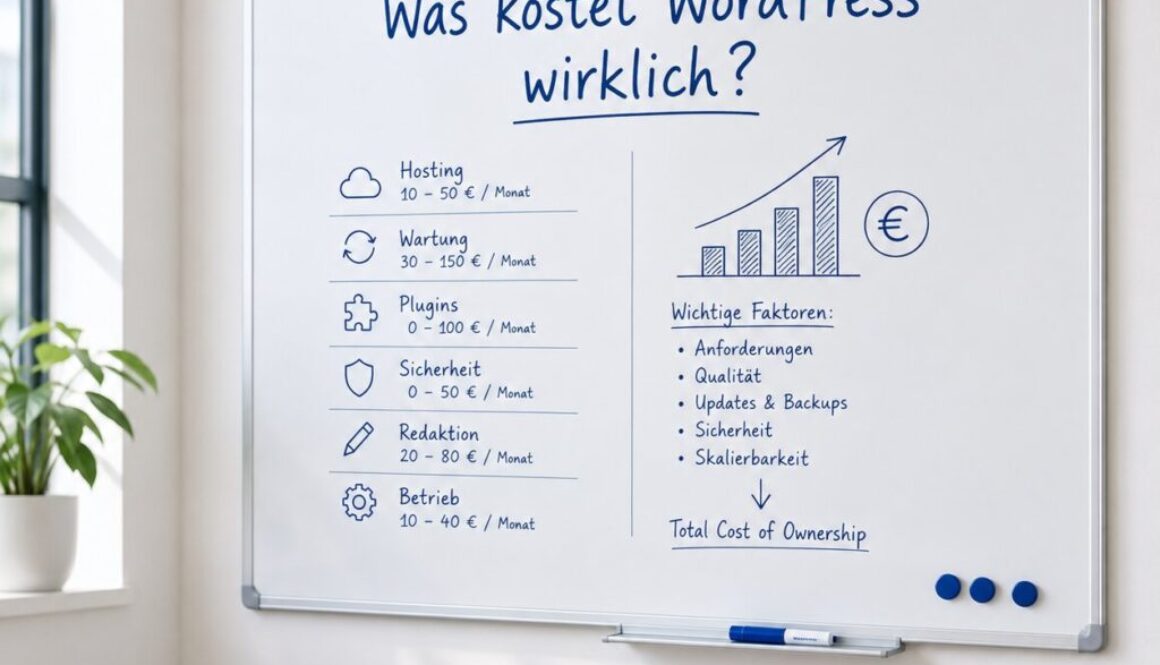 Was kostet WordPress
wirklich?
Hosting
10 – 50 € / Monat
Wartung
30 – 150 € / Monat
Plugins
0 – 100 € / Monat
Sicherheit
0 – 50 € / Monat
Redaktion
20 – 80 € / Monat
Betrieb
10 – 40 € / Monat
€
Wichtige Faktoren:
• Anforderungen
• Qualität
• Updates & Backups
• Sicherheit
• Skalierbarkeit
Total Cost of Ownership